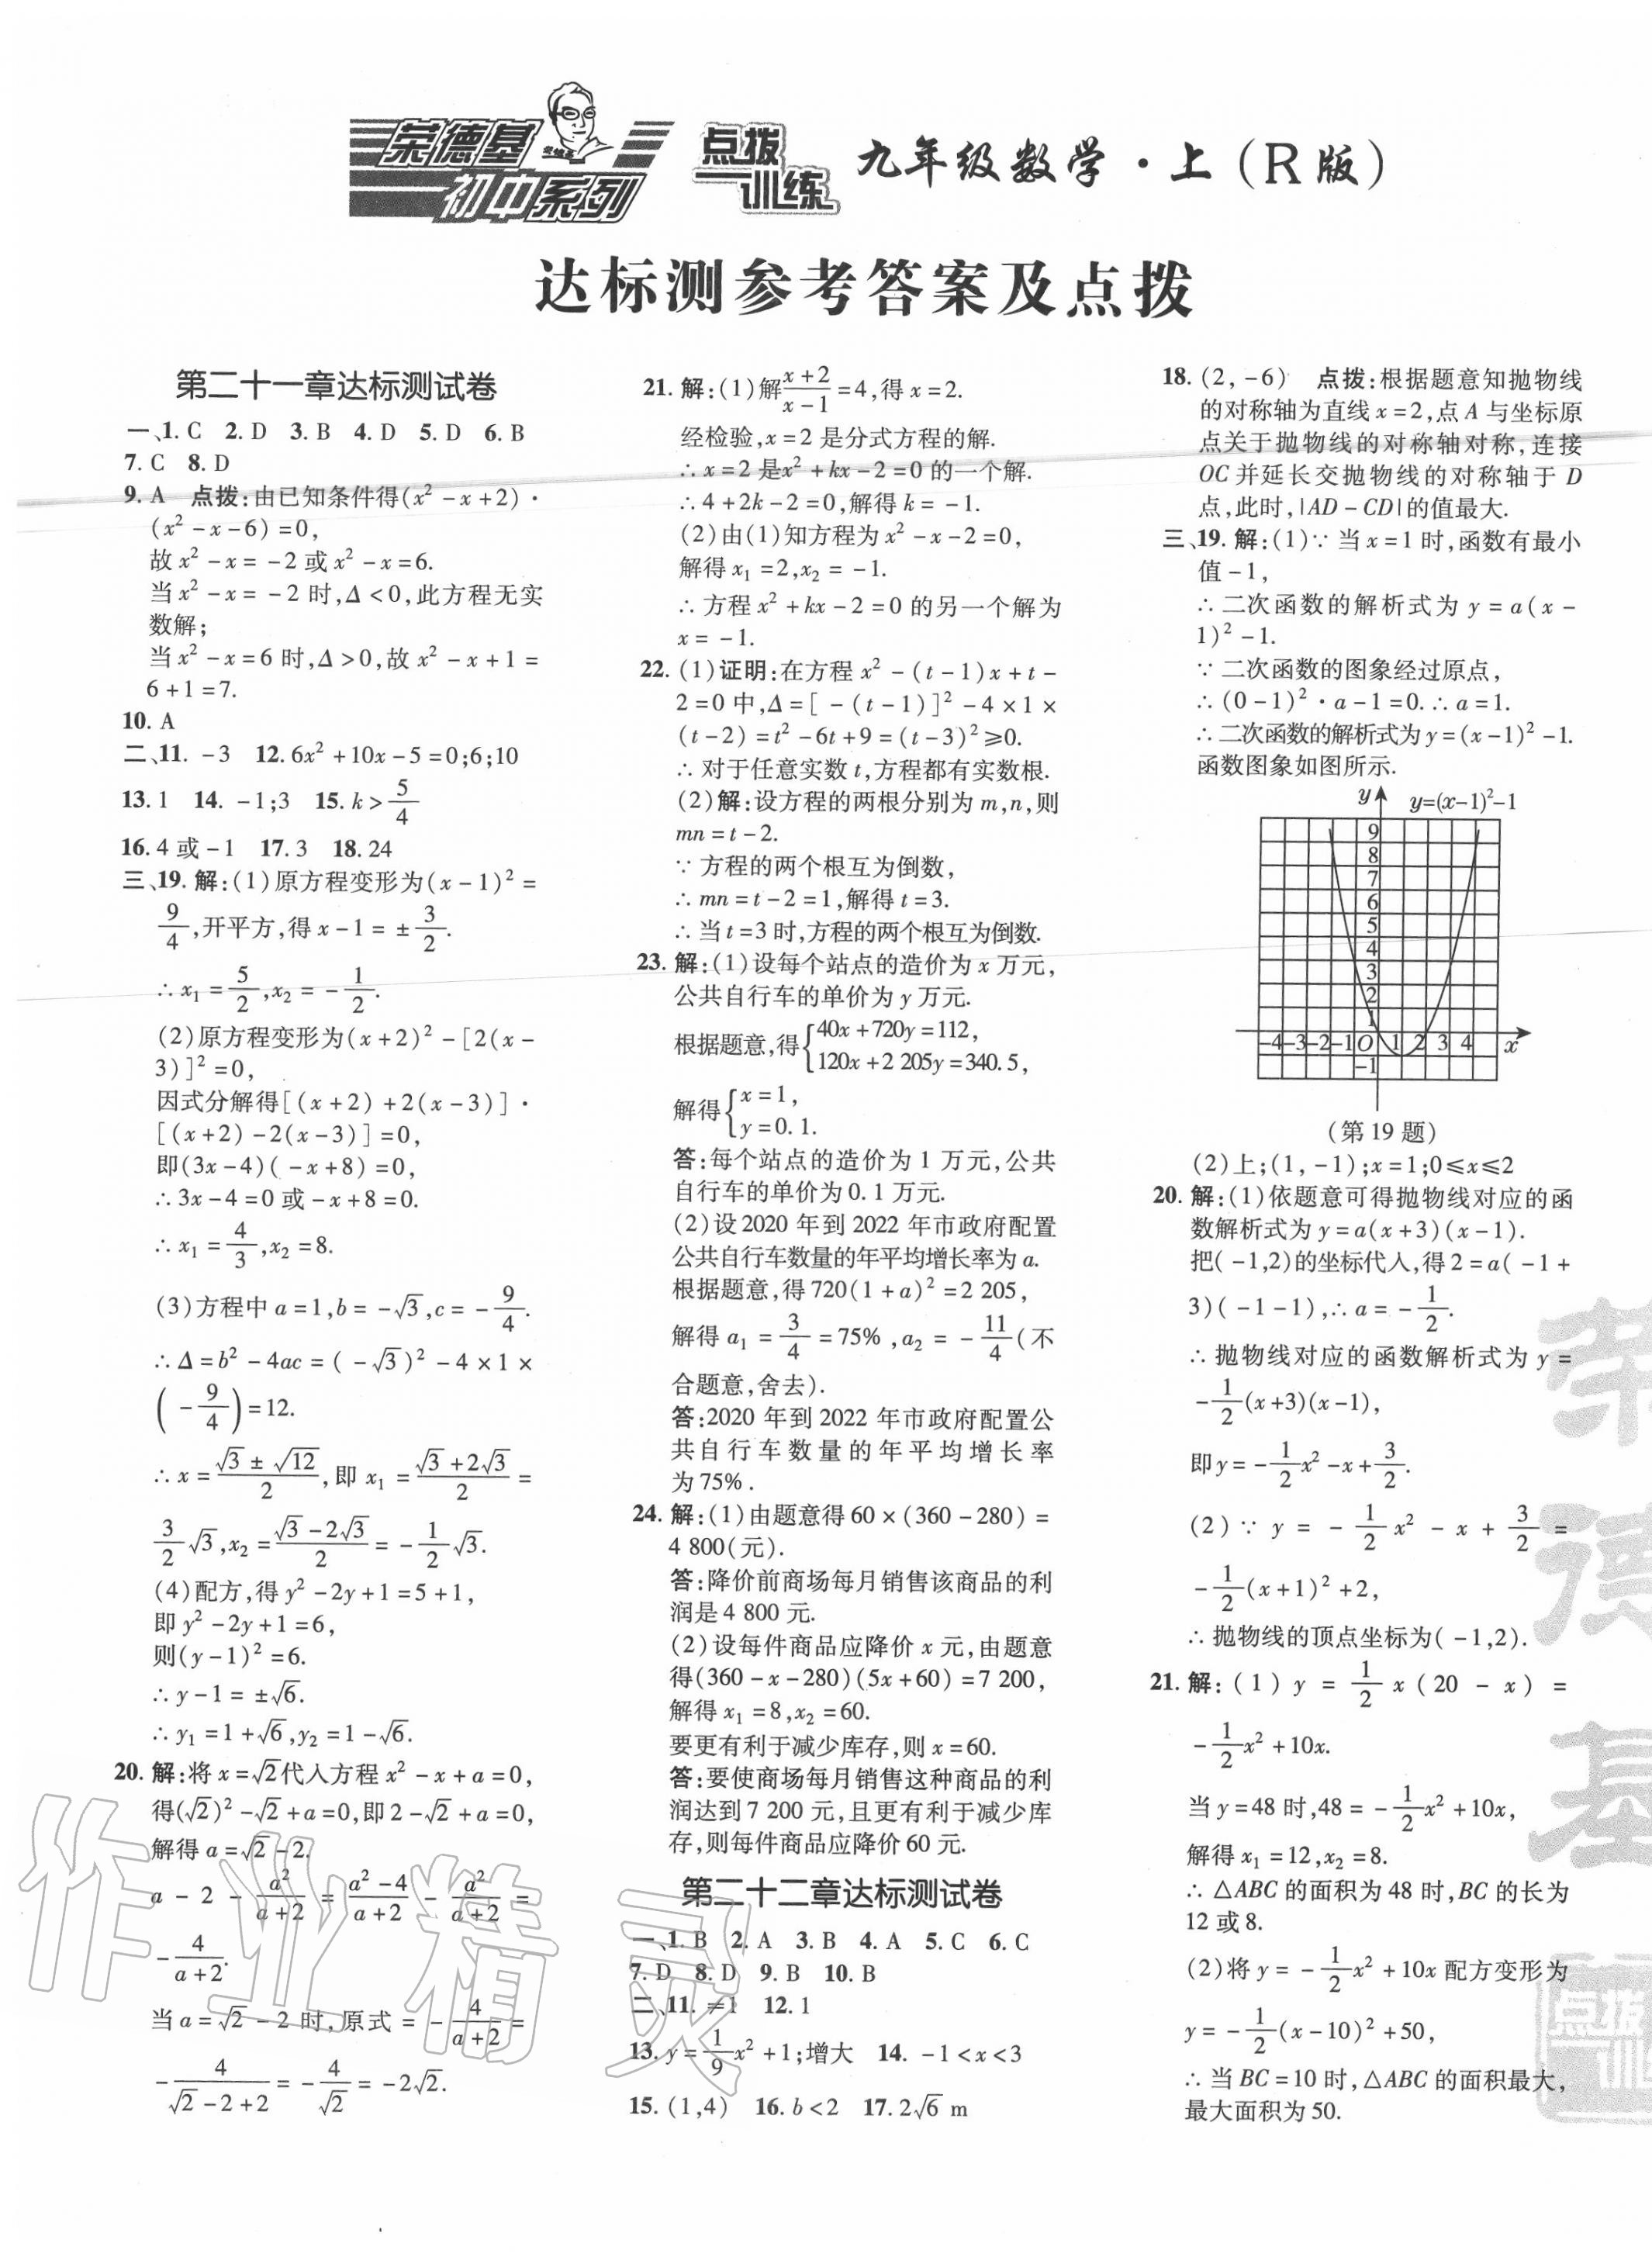 荣德基
初中系列
点拨
训练
九年级数学·上(R版)
达标测参考答案及点拨
第二十一章达标测试卷
一、1. C 2. D 3. B 4. D 5. D 6. B
7. C 8. D
9. A 点拨:由已知条件得(x²-x+2)·
(x²-x-6)=0,
故x²-x=-2或x²-x=6.
当x²-x=-2时,Δ<0,此方程无实
数解;
当x²-x=6时,Δ>0,故x²-x+1=
6+1=7.
10. A
二、11. -3 12. 6x²+10x-5=0;6;10
13. 1 14. -1;3 15. k>5/4
16. 4或-1 17. 3 18. 24
三、19. 解:(1)原方程变形为(x-1)²=
9/4,开平方,得x-1=±3/2.
∴x₁=5/2,x₂=-1/2.
(2)原方程变形为(x+2)²-[2(x-
3)]²=0,
因式分解得[(x+2)+2(x-3)]·
[(x+2)-2(x-3)]=0,
即(3x-4)(-x+8)=0,
∴3x-4=0或-x+8=0.
∴x₁=4/3,x₂=8.
(3)方程中a=1,b=-√3,c=-9/4.
∴Δ=b²-4ac=(-√3)²-4×1×
(-9/4)=12.
∴x=(√3±√12)/2,即x₁=(√3+2√3)/2=
3/2√3,x₂=(√3-2√3)/2=-1/2√3.
(4)配方,得y²-2y+1=5+1,
即y²-2y+1=6,
则(y-1)²=6.
∴y-1=±√6.
∴y₁=1+√6,y₂=1-√6.
20. 解:将x=√2代入方程x²-x+a=0,
得(√2)²-√2+a=0,即2-√2+a=0,
解得a=√2-2.
a-2-a²/(a+2)=(a²-4)/(a+2)-a²/(a+2)=
-4/(a+2).
当a=√2-2时,原式=-4/(a+2)=
-4/(√2-2+2)=-4/√2=-2√2.
21. 解:(1)解(x+2)/(x-1)=4,得x=2.
经检验,x=2是分式方程的解.
∴x=2是x²+kx-2=0的一个解.
∴4+2k-2=0,解得k=-1.
(2)由(1)知方程为x²-x-2=0,
解得x₁=2,x₂=-1.
∴方程x²+kx-2=0的另一个解为
x=-1.
22. (1)证明:在方程x²-(t-1)x+t-
2=0中,Δ=[-(t-1)]²-4×1×
(t-2)=t²-6t+9=(t-3)²≥0.
∴对于任意实数t,方程都有实数根.
(2)解:设方程的两根分别为m,n,则
mn=t-2.
∵方程的两个根互为倒数,
∴mn=t-2=1,解得t=3.
∴当t=3时,方程的两个根互为倒数.
23. 解:(1)设每个站点的造价为x万元,
公共自行车的单价为y万元.
根据题意,得{40x+720y=112,
120x+2 205y=340.5,
解得{x=1,
y=0.1.
答:每个站点的造价为1万元,公共
自行车的单价为0.1万元.
(2)设2020年到2022年市政府配置
公共自行车数量的年平均增长率为a.
根据题意,得720(1+a)²=2 205,
解得a₁=3/4=75%,a₂=-11/4(不
合题意,舍去).
答:2020年到2022年市政府配置公
共自行车数量的年平均增长率
为75%.
24. 解:(1)由题意得60×(360-280)=
4 800(元).
答:降价前商场每月销售该商品的利
润是4 800元.
(2)设每件商品应降价x元,由题意
得(360-x-280)(5x+60)=7 200,
解得x₁=8,x₂=60.
要更有利于减少库存,则x=60.
答:要使商场每月销售这种商品的利
润达到7 200元,且更有利于减少库
存,则每件商品应降价60元.
第二十二章达标测试卷
一、1. B 2. A 3. B 4. A 5. C 6. C
7. D 8. D 9. B 10. B
二、11. ≠1 12. 1
13. y=1/9x²+1;增大 14. -1<x<3
15. (1,4) 16. b<2 17. 2√6 m
18. (2,-6) 点拨:根据题意知抛物线
的对称轴为直线x=2,点A与坐标原
点关于抛物线的对称轴对称,连接
OC并延长交抛物线的对称轴于D
点,此时,|AD-CD|的值最大.
三、19. 解:(1)∵当x=1时,函数有最小
值-1,
∴二次函数的解析式为y=a(x-
1)²-1.
∵二次函数的图象经过原点,
∴(0-1)²·a-1=0.∴a=1.
∴二次函数的解析式为y=(x-1)²-1.
函数图象如图所示.
y y=(x-1)²-1
9
8
7
6
5
4
3
2
1
-4 -3 -2 -1 O 1 2 3 4 x
-1
(第19题)
(2)上;(1,-1);x=1;0≤x≤2
20. 解:(1)依题意可得抛物线对应的函
数解析式为y=a(x+3)(x-1).
把(-1,2)的坐标代入,得2=a(-1+
3)(-1-1),∴a=-1/2.
∴抛物线对应的函数解析式为y=
-1/2(x+3)(x-1),
即y=-1/2x²-x+3/2.
(2)∵y=-1/2x²-x+3/2=
-1/2(x+1)²+2,
∴抛物线的顶点坐标为(-1,2).
21. 解:(1)y=1/2x(20-x)=
-1/2x²+10x.
当y=48时,48=-1/2x²+10x,
解得x₁=12,x₂=8.
∴△ABC的面积为48时,BC的长为
12或8.
(2)将y=-1/2x²+10x配方变形为
y=-1/2(x-10)²+50,
∴当BC=10时,△ABC的面积最大,
最大面积为50.
荣德基
点拨
训练
作业精灵